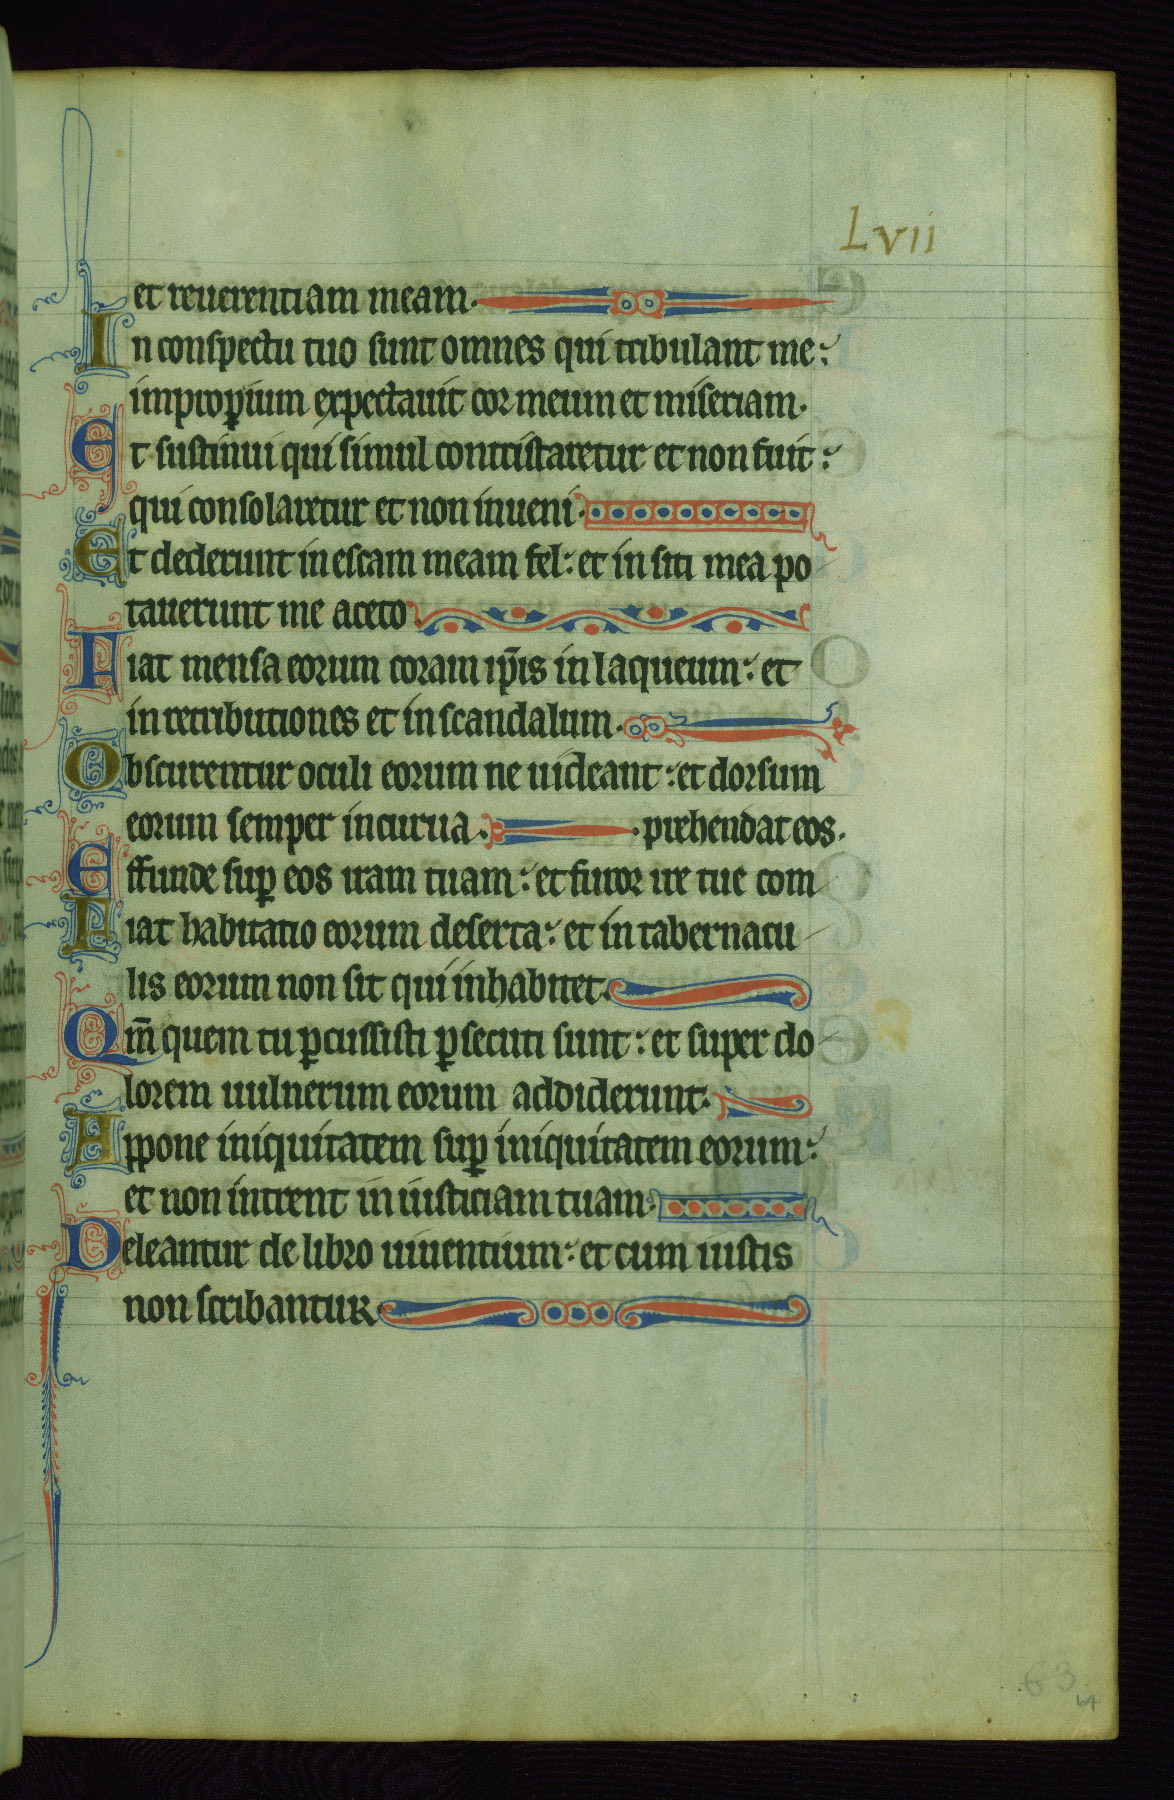 Lvii
et reuerentiam meam.
In conspectu tuo sunt omnes qui tribulant me:
improꝑium expectauit cor meum et miseriam.
Et sustinui qui simul contristaretur et non fuit:
qui consolaretur et non inueni.
Et dederunt in escam meam fel: et in siti mea po
tauerunt me aceto.
Fiat mensa eorum coram ip̄is in laqueum: et
in retributiones et in scandalum.
Obscurentur oculi eorum ne uideant: et dorsum
eorum semper incurua. prehendat eos.
Effunde suꝑ eos iram tuam: et furor ire tue com
Fiat habitatio eorum deserta: et in tabernacu
lis eorum non sit qui inhabitet.
Qm̄ quem tu ꝑcussisti ꝑsecuti sunt: et super do
lorem uulnerum eorum addiderunt.
Appone iniquitatem suꝑ iniquitatem eorum:
et non intrent in iusticiam tuam.
Deleantur de libro uiuentium: et cum iustis
non scribantur.
63
64